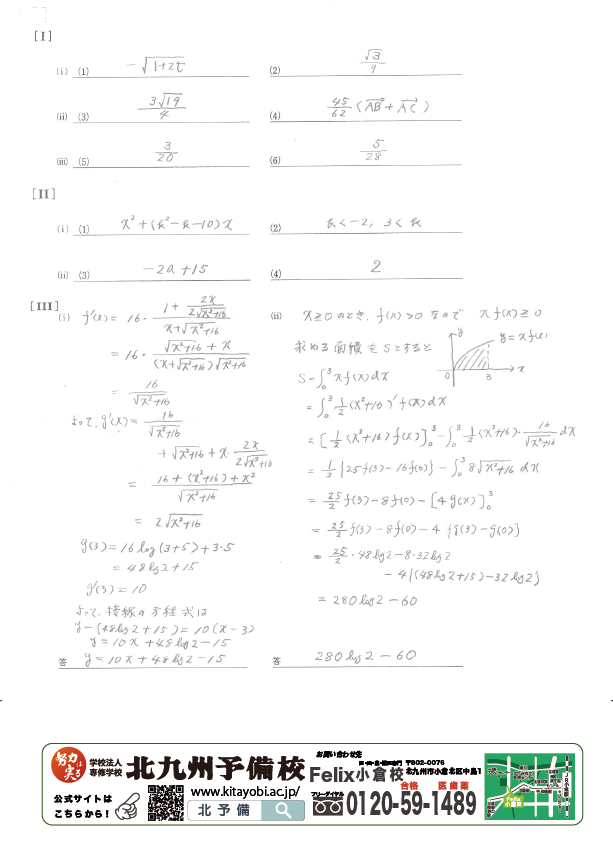 [I]
(i) (1) −√(1+2t) (2) √3/9
(ii) (3) 3√19/4 (4) 45/62 (AB→ + AC→)
(iii) (5) 3/20 (6) 5/28
[II]
(i) (1) x²+(k²−k−10)x (2) k<−2, 3<k
(ii) (3) −2a+15 (4) 2
[III]
(i) f'(x) = 16・(1 + 2x/(2√(x²+16)))/(x+√(x²+16))
= 16・(√(x²+16) + x)/((x+√(x²+16))√(x²+16))
= 16/√(x²+16)
よって、g'(x) = 16/√(x²+16)
+ √(x²+16) + x・2x/(2√(x²+16))
= (16+(x²+16)+x²)/√(x²+16)
= 2√(x²+16)
g(3) = 16log(3+5)+3・5
= 48log2+15
g'(3) = 10
よって、接線の方程式は
y−(48log2+15) = 10(x−3)
y = 10x+48log2−15
答 y = 10x+48log2−15
(ii) x≧0のとき, f(x)>0なので xf(x)≧0
求める面積をSとすると
y
y=xf(x)
0 3 x
S = ∫₀³ xf(x)dx
= ∫₀³ 1/2(x²+16)'f(x)dx
= [1/2(x²+16)f(x)]₀³ − ∫₀³ 1/2(x²+16)・16/√(x²+16) dx
= 1/2{25f(3)−16f(0)} − ∫₀³ 8√(x²+16) dx
= 25/2 f(3)−8f(0)−[4g(x)]₀³
= 25/2 f(3)−8f(0)−4{g(3)−g(0)}
= 25/2・48log2−8・32log2
−4{(48log2+15)−32log2}
= 280log2−60
答 280log2−60
努力は実る
学校法人
専修学校
北九州予備校
公式サイトは
こちらから!
www.kitayobi.ac.jp/
北予備
お問い合わせ先
〒802-0076
Felix小倉校
北九州市小倉北区中島1
合格 医歯薬
フリーダイヤル
0120-59-1489
Felix
小倉校